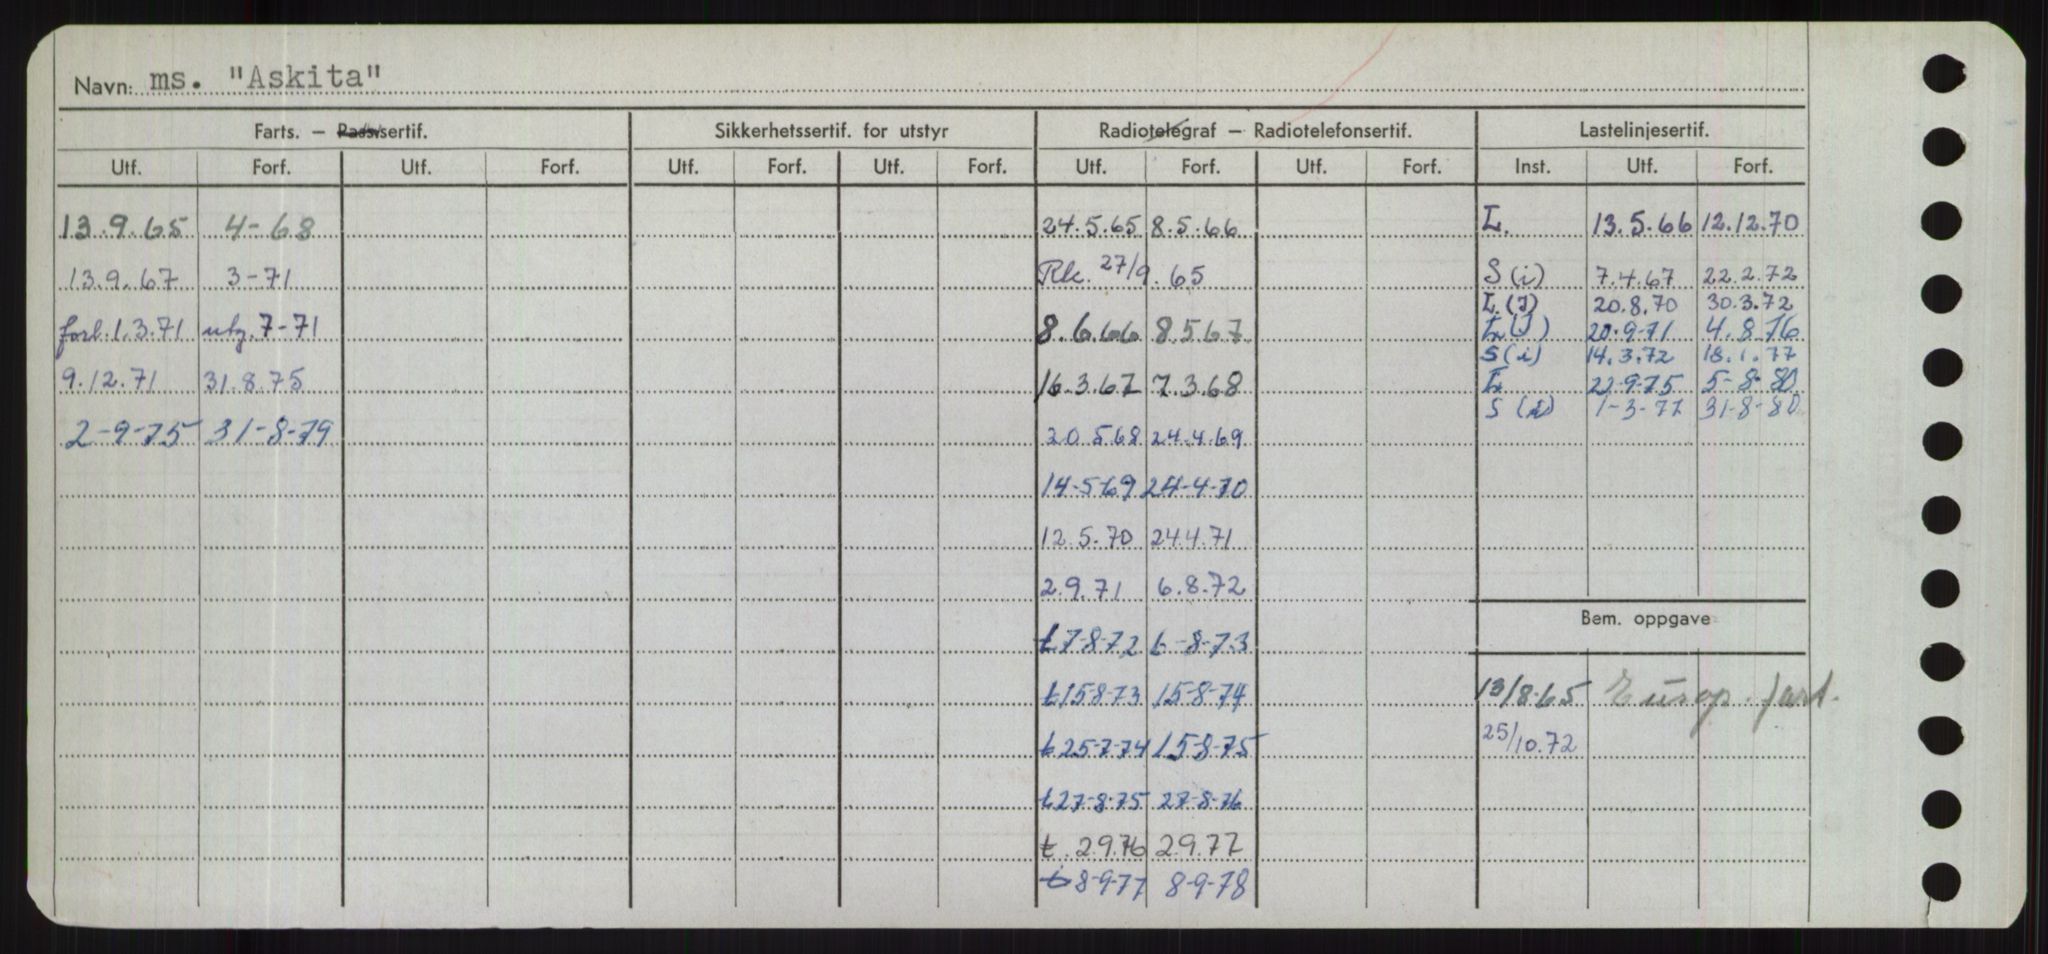 Navn: ms. "Askita"
Farts. – Passasjersertif. Sikkerhetssertif. for utstyr Radiotelegraf – Radiotelefonsertif. Lastelinjesertif.
Utf. Forf. Utf. Forf. Utf. Forf. Utf. Forf. Utf. Forf. Utf. Forf. Inst. Utf. Forf.
13.9.65 4-68 24.5.65 8.5.66 L. 13.5.66 12.12.70
13.9.67 3-71 27/9.65 S(i) 7.4.67 22.2.72
L.(J) 20.8.70 30.3.72
forl.1.3.71 utg.7-71 8.6.66 8.5.67 L(J) 20-9-71 4.8.76
S(i) 14.3.72 18.1.77
9.12.71 31.8.75 16.3.67 7.3.68 L 22-9-75 5-8-80
S(i) 1-3-77 31-8-80
2-9-75 31-8-79 20.5.68 24.4.69
14-5-69 24-4-70
12.5.70 24.4.71
2.9.71 6.8.72
Bem. oppgave
t 7-8-72 6-8-73
t 15-8-73 15-8-74 13/8-65 Europ. fart.
t 25-7-74 15-8-75 25/10.72
t 27-8-75 27-8-76
t. 2.9.76 2.9.77
t 8-9-77 8-9-78